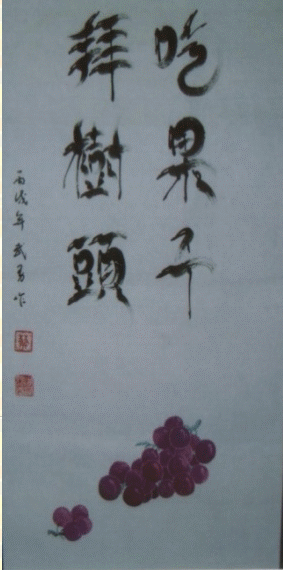 吃果子
拜樹頭
丙戌年武勇作